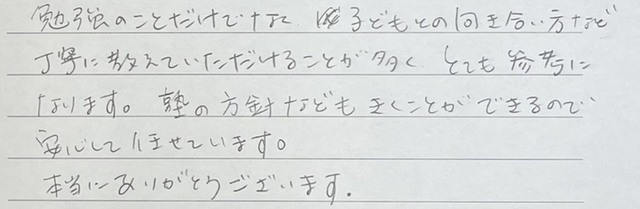 勉強のことだけでなく 子どもとの向き合い方など
丁寧に教えていただけることが多く とても参考に
なります。塾の方針などもきくことができるので
安心して任せています。
本当にありがとうございます.